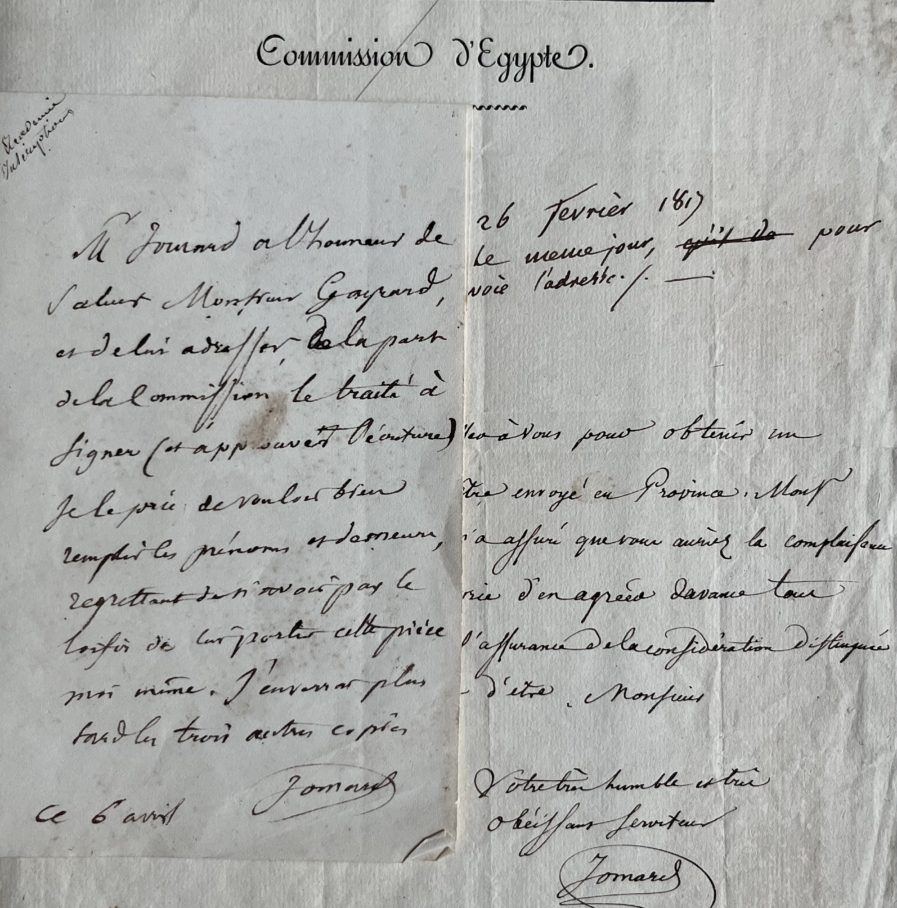 Commission d'Egypte.
Académie
Inscriptions
Mr Jomard a l'honneur de
saluer Monsieur Gayrard,
et de lui adresser, de la part
de la Commission le traité à
signer (et approuver l'écriture)
Je le prie de vouloir bien
remplir les prénoms et demeure,
regrettant de n'avoir pas le
loisir de lui porter cette pièce
moi même. J'enverrai plus
tard les trois autres copies
Jomard
ce 6 avril
26 fevrièr 1817
le meme jour, qu'il da pour
voie l'adresse ./. —
à vous pour obtenir un
tre envoyé en Province. Monsr
a assuré que vous auriez la complaisance
rie d'en agréer davance tous
l'assurance de la considération distinguée
d'etre, Monsieur
Votre très humble et très
obéissant serviteur
Jomard